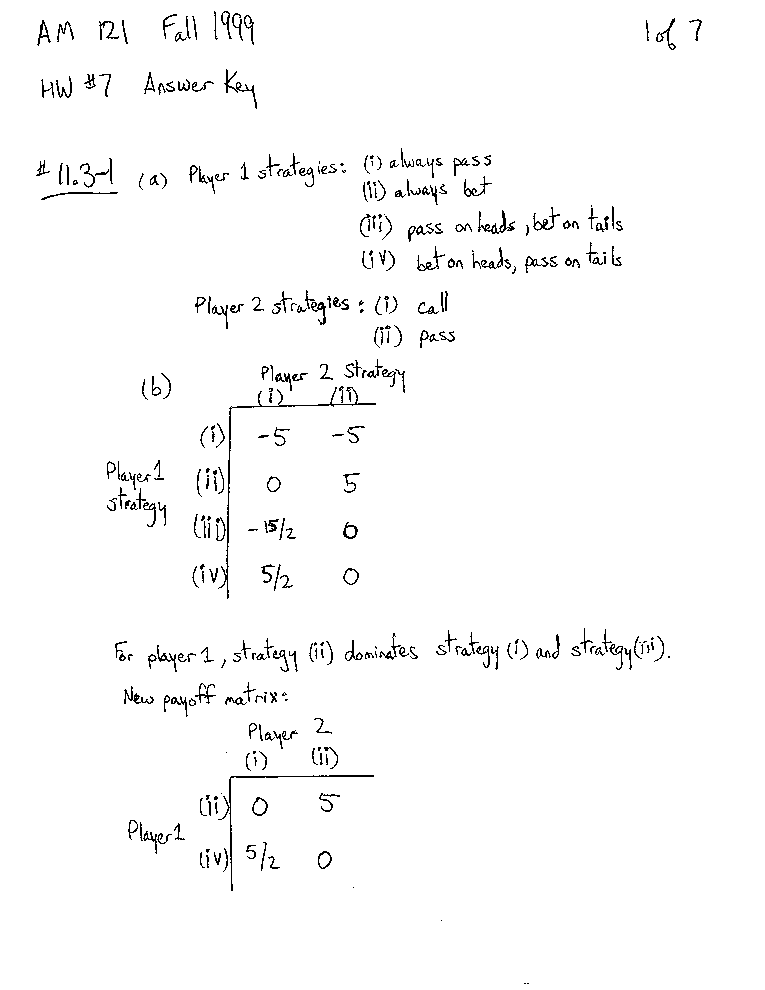 AM 121 Fall 1999 1 of 7
HW #7 Answer Key
# 11.3-1 (a) Player 1 strategies: (i) always pass
(ii) always bet
(iii) pass on heads, bet on tails
(iv) bet on heads, pass on tails
Player 2 strategies: (i) call
(ii) pass
(b) Player 2 Strategy
(i) (ii)
(i) -5 -5
Player 1 (ii) 0 5
strategy (iii) -15/2 0
(iv) 5/2 0
For player 1, strategy (ii) dominates strategy (i) and strategy (iii).
New payoff matrix:
Player 2
(i) (ii)
(ii) 0 5
Player 1
(iv) 5/2 0